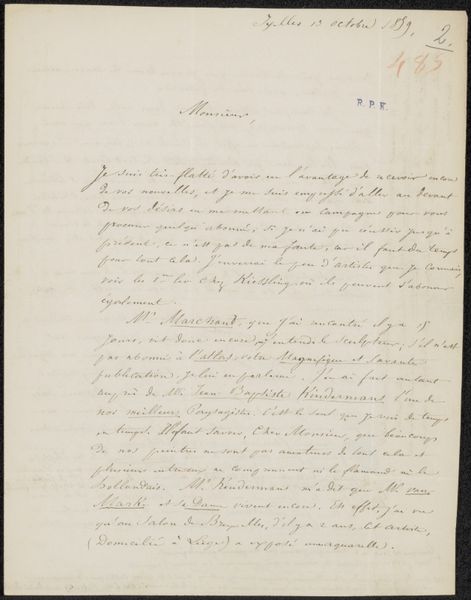 Ixelles 13 octobre 1859.
2.
483
R.P.K.
Monsieur,
Je suis très flatté d'avoir eu l'avantage de recevoir encore
de vos nouvelles, et je me suis empressé d'aller au devant
de vos désirs en me mettant en campagne pour vous
procurer quelqu'abonné; si je n'ai pu réussir jusqu'à
présent, ce n'est pas de ma faute, car il faut du temps
pour tout cela. J'enverrai le peu d'artistes que je connais,
voir les chez Kiessling où ils peuvent s'abonner
également.
Mr. Marchand, que j'ai rencontré il y a 15
jours, vit donc encore, j'entends le sculpteur; s'il n'est
pas abonné à l'atlas, votre Magnifique et savante
publication, je lui en parlerai. J'en ai fait autant
auprès de Mr. Jean Baptiste Kindermans, l'un de
nos meilleurs Paysagistes. C'est le seul que je vois de temps
en temps. Il faut savoir, Cher Monsieur, que beaucoup
de nos peintres ne sont pas amateurs de tout cela et
plusieurs entr'eux ne comprennent ni le flamand ni le
Hollandais. Mr. Kindermans m'a dit que Mr. van
Marke et sa Dame vivent encore. En effet, j'ai vu
qu'au Salon de Bruxelles, d'il y a 2 ans, cet artiste,
(Domicilié à Liège) a exposé une aquarelle.